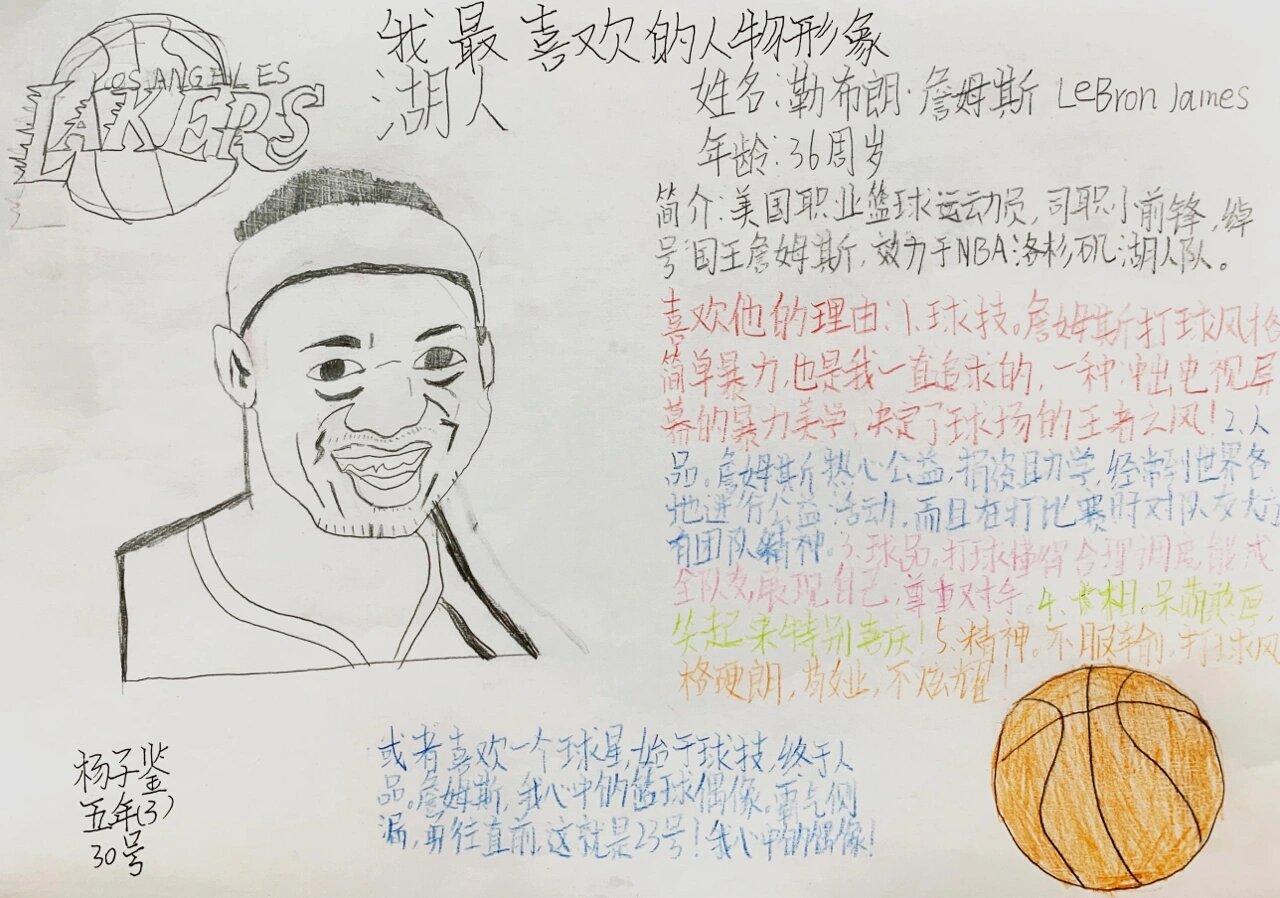 我最喜欢的人物形象
LOS ANGELES
LAKERS
湖人
姓名:勒布朗·詹姆斯 LeBron James
年龄:36周岁
简介:美国职业篮球运动员,司职小前锋,绰
号:国王詹姆斯,效力于NBA洛杉矶湖人队。
喜欢他的理由:1.球技。詹姆斯打球风格
简单暴力,也是我一直追求的,一种冲出电视屏
幕的暴力美学,决定了球场的王者之风!2.人
品。詹姆斯热心公益,捐资助学,经常到世界各
地进行公益活动,而且在打比赛时对队友大方
有团队精神。3.球品。打球懂得合理调度,能成
全队友,展现自己,尊重对手。4.长相。呆萌敢逗,
笑起来特别喜庆!5.精神。不服输,打球风
格硬朗,敬业,不炫耀!
或者喜欢一个球星,始于球技,终于人
品。詹姆斯,我心中的篮球偶像。霸气侧
漏,勇往直前,这就是23号!我心中的偶像!
杨子鉴
五年(3)
30号